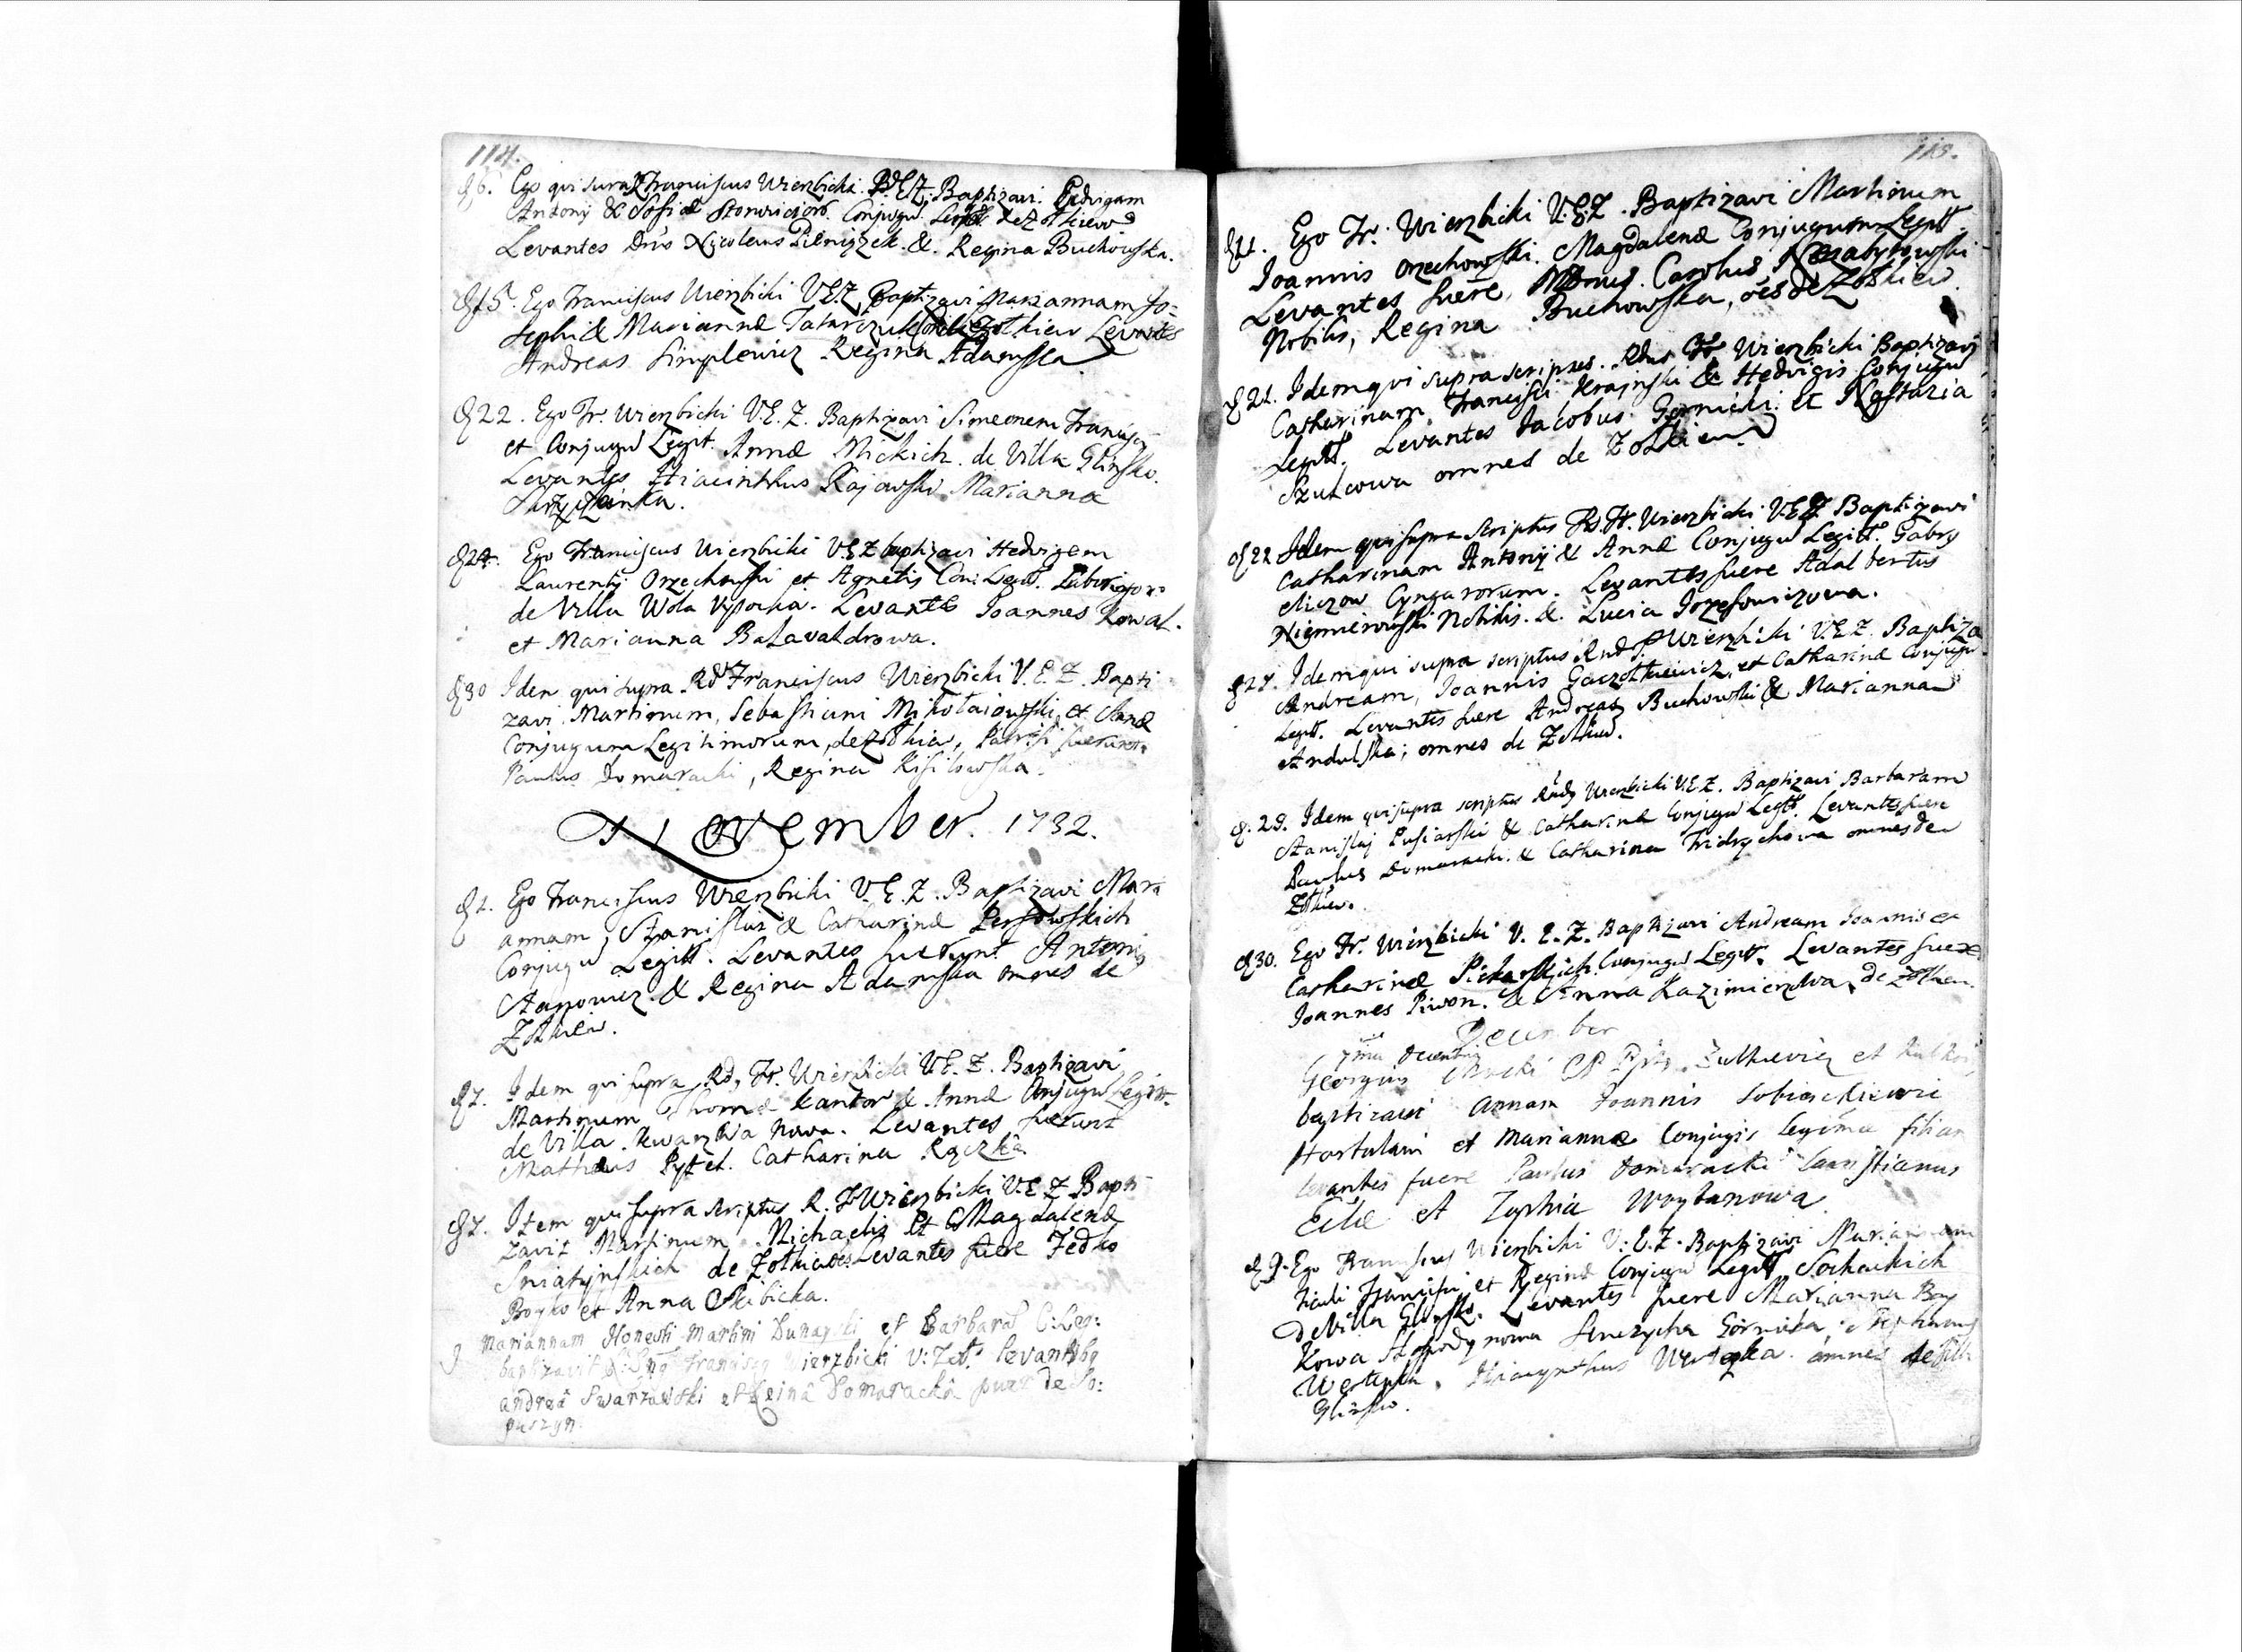 114.
d 6. Ego qui supra Franciscus Wierzbicki V.E.Z. Baptizavi Edvigam
Antonij & Sofiæ Conjugū Legitt. de Zolkiew
Levantes Dn̄s Nicolaus Pieniążek. &. Regina Buchowska.
d 15. Ego Franciscus Wierzbicki V.E.Z. Baptizavi Mariannam Jo-
sephi & Mariannæ Tatarczuk de Zolkiew Levantes
Andreas Simplewicz Regina Adamska
d 22. Ego Fr. Wierzbicki V.E.Z. Baptizavi Simeonem Francisci
et Conjugū Legit. Annæ Mickich. de Villa Glinsko.
Levantes Hiacinthus Kajowski Marianna
d 24. Ego Franciscus Wierzbicki V.E.Z baptizavi Hedvigem
Laurentij Orzechowski et Agnetis Con: Legit. Laborigor.
de Villa Wola Wysocka. Levantes Joannes Kowal.
et Marianna Balavaldrowa.
d 30 Idem qui supra Rd Franciscus Wierzbicki V.E.Z. Bapti
zavi Martinum, Sebastiani Mikołaiowski, et Annæ
Conjugum Legitimorum, de Zolkiew, Patrini fuerunt.
Paulus Domaracki, Regina Kisilowska.
November. 1732.
d 1. Ego Franciscus Wierzbicki V.E.Z. Baptizavi Mari
annam, Stanislai & Catharinæ Persowskich
Conjugū Legitt. Levantes fuerunt Antoni
& Regina Adamska omnes de
Zolkiew.
d 7. Idem qui supra Rd, Fr. Wierzbicki V.E.Z. Baptizavi
Martinum Thomæ Kantor & Annæ Conjugū Legitt.
de Villa Nova. Levantes fuerunt
Mathæus Pytel. Catharina Rączka
d 7. Item qui supra scriptus R. F Wierzbicki V.E.Z Bapti
zavit Martinum Michaelis Et Magdalenæ
Sniatynskich de Zolkiew Levantes fuere Fedko
Boyko et Anna Skibicka.
9 Mariannam Honesti Martini et Barbara C: Leg:
baptizavit Francisq Wierzbicki V: Levantibq
andreâ Swarzewski et Domarackâ puer de So:
puszyn.
115.
d 11. Ego Fr. Wierzbicki V.E.Z. Baptizavi Martinum
Joannis Orzechowski. Magdalenæ Conjugum Legitt.
Levantes fuere, Carolus Nezabytowski
Nobilis, Regina Buchowska, oēs de Zolkiew.
d 21. Idem qui supra scripses. Rdus Fr Wierzbicki Baptizavi
Catharinam Francisci Krajnski & Hedvigis Conjugū
Legitt. Levantes Jacobus Gornicki et Nastazia
Szulcowa omnes de Zolkiew.
d 22 Idem qui supra scriptus Rd. Fr. Wierzbicki V.E.Z Baptizavi
Catharinam Antonij & Annæ Conjugū Legitt. Gabry
eliczow Cyngarorum. Levantes fuere Adalbertus
Niemierowski Nobilis. &. Lucia Jozefowiczowa.
d 27. Idem qui supra scriptus Rnd F Wierzbicki V.E.Z. Baptiza
Andream, Joannis Gaczołkiewicz, et Catharinæ Conjugū
Legitt. Levantes fuere Andreas Buchowski & Marianna
Andulska; omnes de Zolkiew.
d. 29. Idem qui supra scriptus Rndq Wierzbicki V.E.Z. Baptizavi Barbaram
Stanislaj Pusiarski & Catharinæ Conjugū Legitt. Levantes fuere
Paulus Domaracki. & Catharina Fridrychowa omnes de
Zolkiew.
d 30. Ego Fr. Wierzbicki V.E.Z. Baptizavi Andream Joannis et
Catharinæ Piekarskich Conjugū Legitt. Levantes fuere
Joannes Piwon. & Anna Kazimierzowa de Zolkiew.
December
7ma Decembris
Georgius et
baptizavi annam Joannis Sobieskiewic
Hortulani et Mariannæ Conjugis legitima filiam
levantes fuere Paulus Domaracki
et Zophia Woytanowa
d 9. Ego Franciscus Wierzbicki V.E.Z. Baptizavi Mariannam
Francisci et Reginæ Conjugū Legitt Sochackich
de Villa Glinsko. Levantes fuere Marianna Boy
kowa Gornicka,
Hiacynthus omnes de Villa
Glinsko.